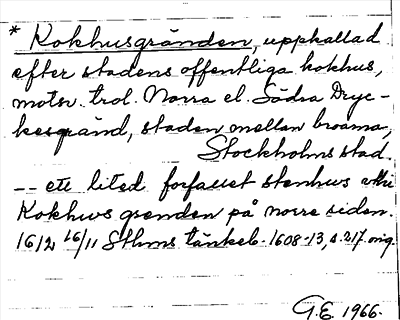 * Kokhusgränden, uppkallad
efter stadens offentliga kokhus,
motsv. trol. Norra el. Södra Dryc-
kesgränd, staden mellan broarna,
Stockholms stad.
-- ett lited forfallet stenhws vthi
Kokhws grenden på norre siden.
1612 16/11 Sthms tänkeb. 1608-13, s. 217. orig.
G.E. 1966.